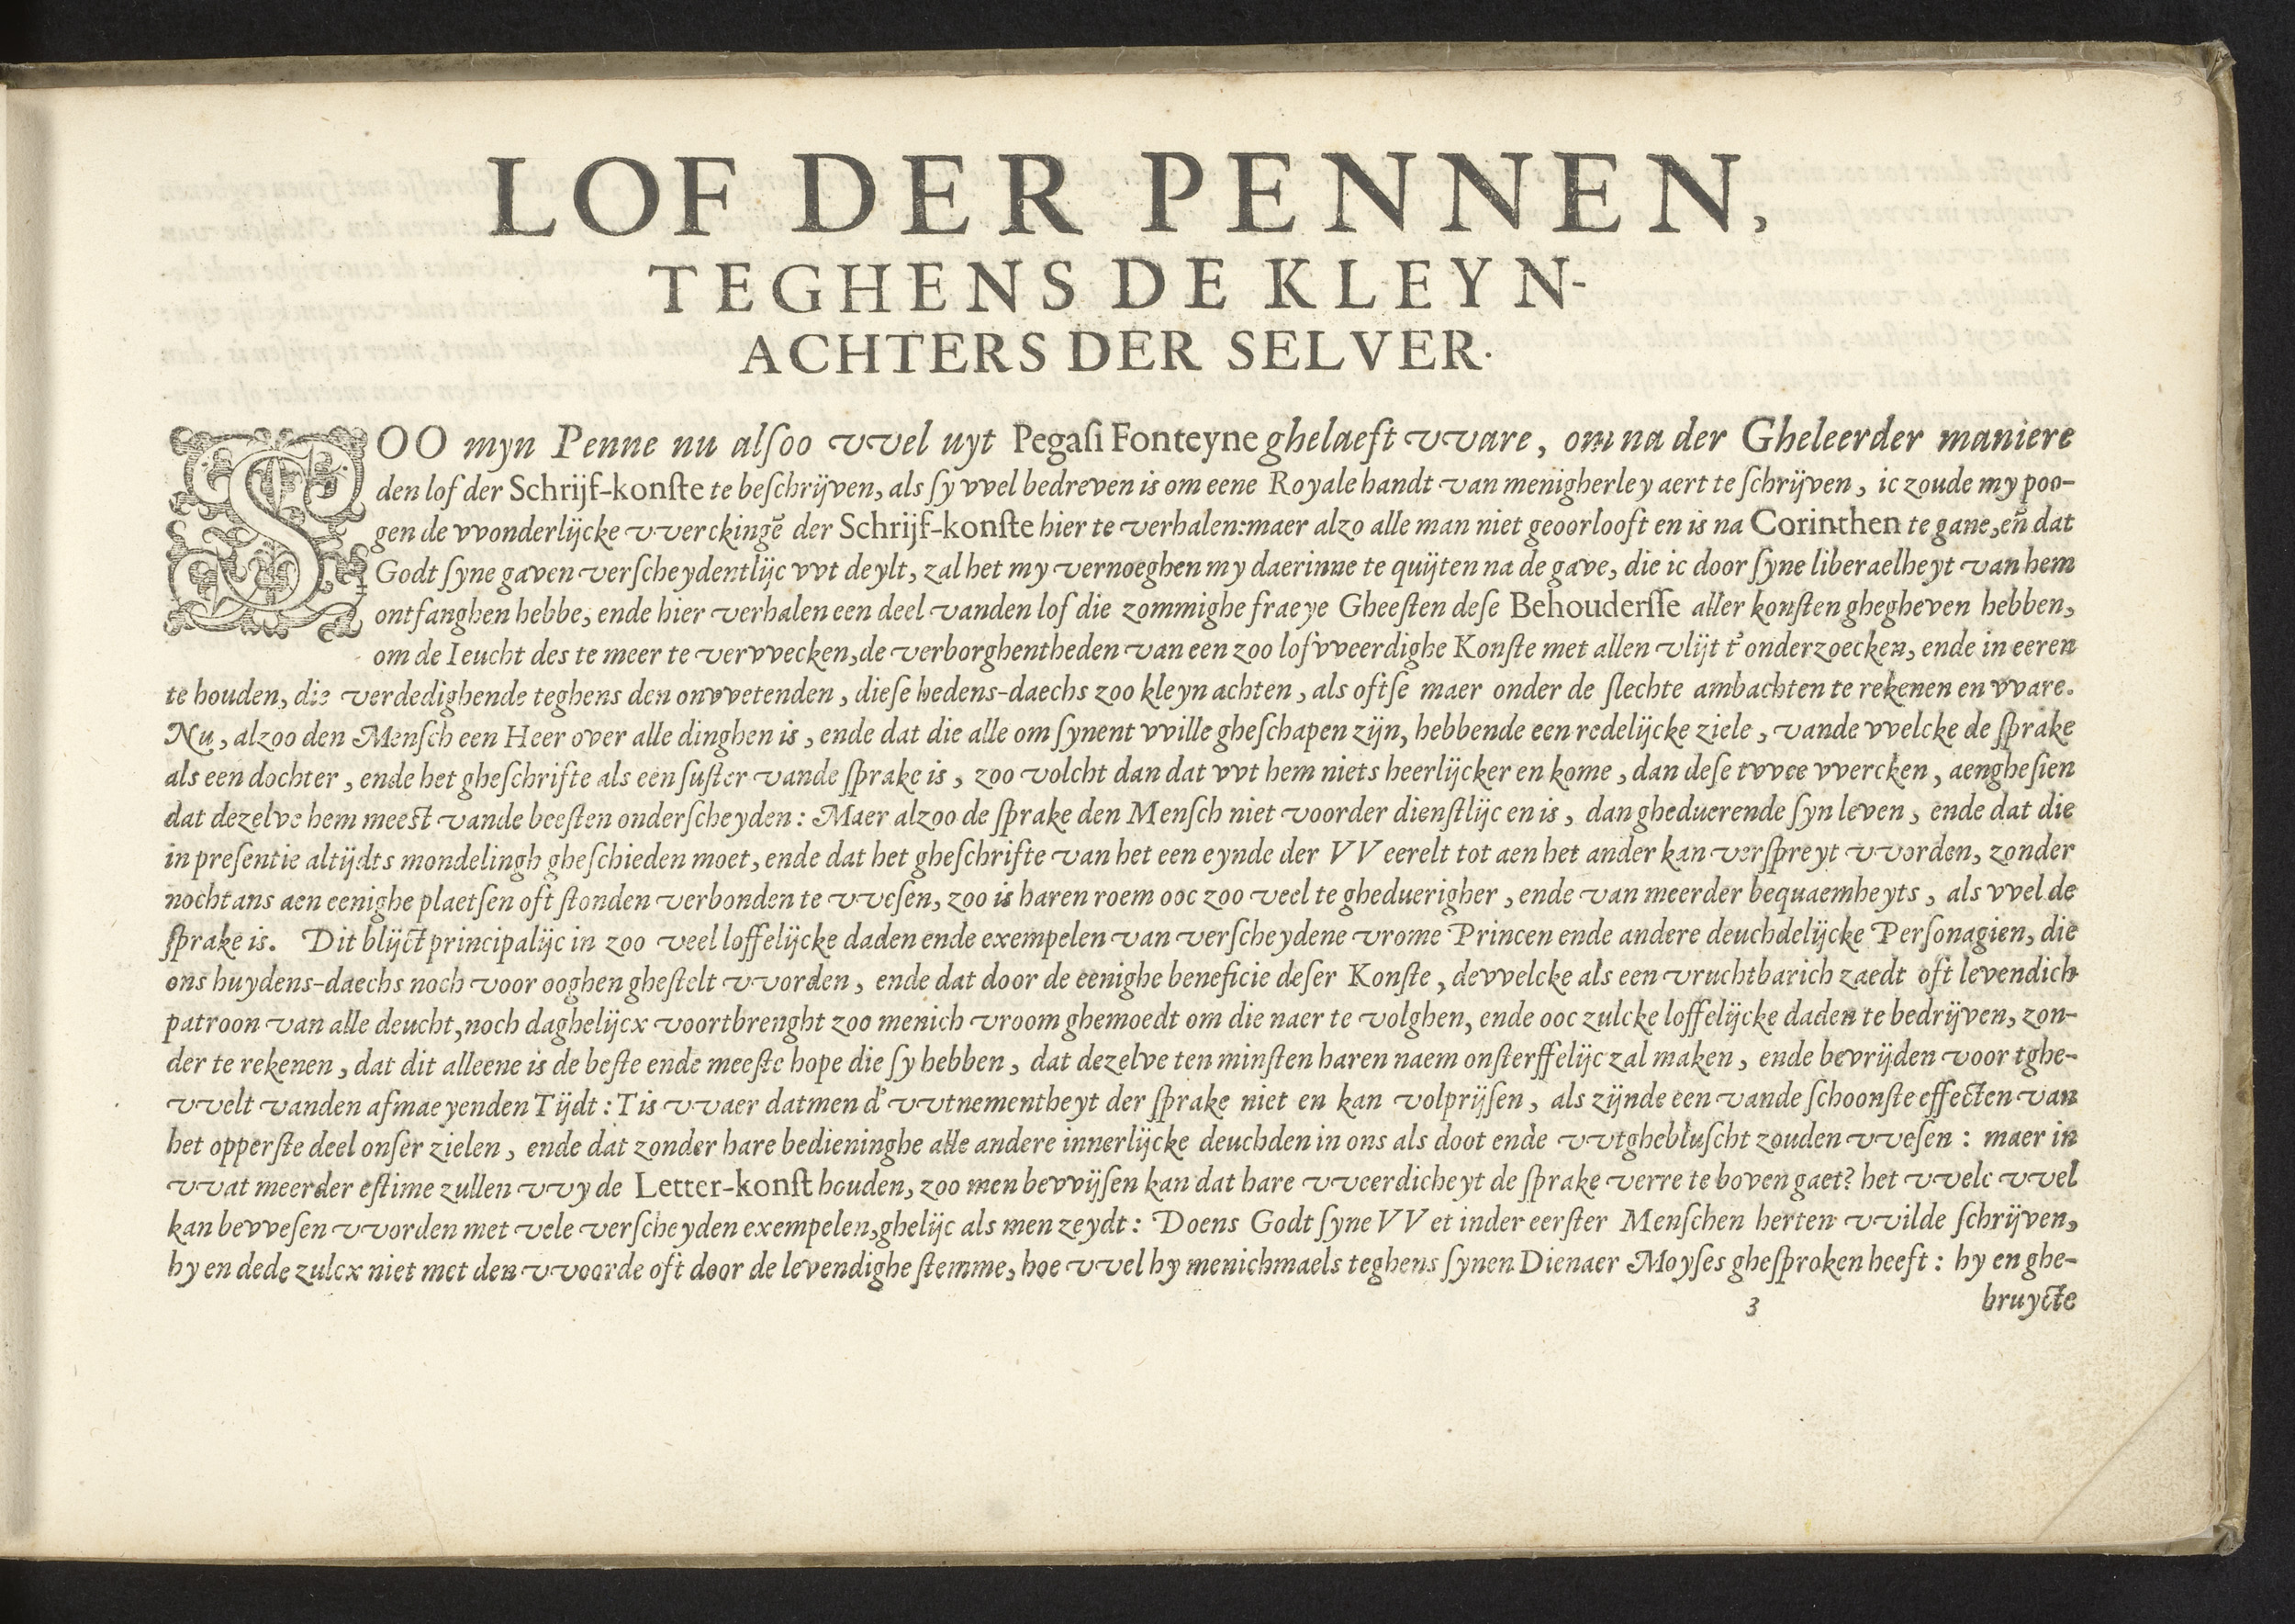 LOF DER PENNEN,
TEGHENS DE KLEYN-
ACHTERS DER SELVER.
SOO myn Penne nu alſoo vvel uyt Pegaſi Fonteyne ghelaeft vvare, om na der Gheleerder maniere
den lof der Schrijf-konſte te beſchrijven, als ſy vvel bedreven is om eene Royale handt van menigherley aert te ſchrijven, ic zoude my poo-
gen de vvonderlijcke vverckingē der Schrijf-konſte hier te verhalen: maer alzo alle man niet geoorlooft en is na Corinthen te gane, en̄ dat
Godt ſyne gaven verſcheydentlijc vvt deylt, zal het my vernoeghen my daerinne te quijten na de gave, die ic door ſyne liberaelheyt van hem
ontfanghen hebbe, ende hier verhalen een deel vanden lof die zommighe fraeye Gheeſten deſe Behouderſſe aller konſten ghegheven hebben,
om de Ieucht des te meer te vervvecken, de verborghentheden van een zoo lofvveerdighe Konſte met allen vlijt t'onderzoecken, ende in eeren
te houden, die verdedighende teghens den onvvetenden, dieſe hedens-daechs zoo kleyn achten, als oftſe maer onder de ſlechte ambachten te rekenen en vvare.
Nu, alzoo den Menſch een Heer over alle dinghen is, ende dat die alle om ſynent vville gheſchapen zijn, hebbende een redelijcke ziele, vande vvelcke de ſprake
als een dochter, ende het gheſchrifte als een ſuſter vande ſprake is, zoo volcht dan dat vvt hem niets heerlijcker en kome, dan deſe tvvee vvercken, aengheſien
dat dezelve hem meest vande beeſten onderſcheyden: Maer alzoo de ſprake den Menſch niet voorder dienſtlijc en is, dan gheduerende ſyn leven, ende dat die
in preſentie altijdts mondelingh gheſchieden moet, ende dat het gheſchrifte van het een eynde der VVeerelt tot aen het ander kan verſpreyt vvorden, zonder
nochtans aen eenighe plaetſen oft ſtonden verbonden te vveſen, zoo is haren roem ooc zoo veel te gheduerigher, ende van meerder bequaemheyts, als vvel de
ſprake is. Dit blijct principalijc in zoo veel loffelijcke daden ende exempelen van verſcheydene vrome Princen ende andere deuchdelijcke Perſonagien, die
ons huydens-daechs noch voor ooghen gheſtelt vvorden, ende dat door de eenighe beneficie deſer Konſte, devvelcke als een vruchtbarich zaedt oft levendich
patroon van alle deucht, noch daghelijcx voortbrenght zoo menich vroom ghemoedt om die naer te volghen, ende ooc zulcke loffelijcke daden te bedrijven, zon-
der te rekenen, dat dit alleene is de beſte ende meeſte hope die ſy hebben, dat dezelve ten minſten haren naem onſterffelijc zal maken, ende bevrijden voor tghe-
vvelt vanden afmaeyenden Tijdt: Tis vvaer datmen d'vvtnementheyt der ſprake niet en kan volprijſen, als zijnde een vande ſchoonſte effecten van
het opperſte deel onſer zielen, ende dat zonder hare bedieninghe alle andere innerlijcke deuchden in ons als doot ende vvtghebluſcht zouden vveſen: maer in
vvat meerder eſtime zullen vvy de Letter-konſt houden, zoo men bevvijſen kan dat hare vveerdicheyt de ſprake verre te boven gaet? het vvelc vvel
kan bevveſen vvorden met vele verſcheyden exempelen, ghelijc als men zeydt: Doens Godt ſyne VVet inder eerſter Menſchen herten vvilde ſchrijven,
hy en dede zulcx niet met den vvoorde oft door de levendighe ſtemme, hoe vvel hy menichmaels teghens ſynen Dienaer Moyſes gheſproken heeft: hy en ghe-
3 bruycte